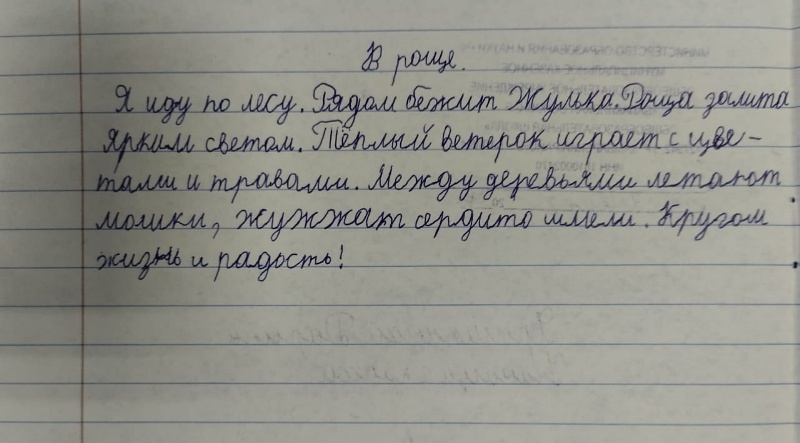 В роще.
Я иду по лесу. Рядом бежит Жулька. Роща залита
ярким светом. Тёплый ветерок играет с цве-
тами и травами. Между деревьями летают
мошки, жужжат сердито шмели. Кругом
жизнь и радость!